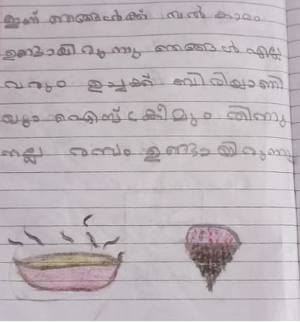 ഇന്ന് ഞങ്ങൾക്ക് സൽ കാരം
ഉണ്ടായിരുന്നു ഞങ്ങൾ എല്ല
വരും ഉച്ചക്ക് ബിരിയാണി
യും ഐസ് ക്രീമും തിന്നു
നല്ല രസം ഉണ്ടായിരുന്നു